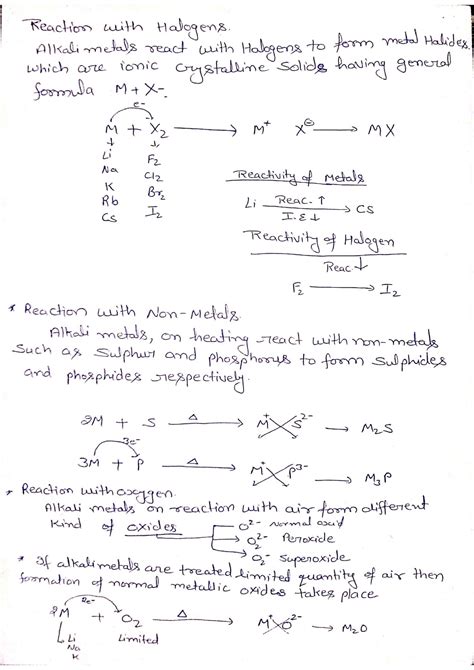 Reaction with Halogens.
Alkali metals react with Halogens to form metal Halides
which are ionic crystalline solids having general
formula M+X-.
e-
M + X2 → M+ X⊖ → MX
Li F2
Na Cl2
K Br2
Rb I2
Cs
Reactivity of Metals
Li Reac. ↑ → CS
I.E ↓
Reactivity of Halogen
Reac ↓
F2 → I2
* Reaction with Non-Metals.
Alkali metals, on heating react with non-metals
such as sulphur and phosphorus to form sulphides
and phosphides respectively.
2M + S Δ→ M+ S2- → M2S
3e-
3M + P Δ→ M+ P3- → M3P
* Reaction with oxygen.
Alkali metals on reaction with air form different
kind of oxides → O2- normal oxid
→ O2 2- Peroxide
→ O2- superoxide
* If alkali metals are treated limited quantity of air then
formation of normal metallic oxides takes place
2e-
2M + O2 Δ→ M+ O2- → M2O
Li Limited
Na
K